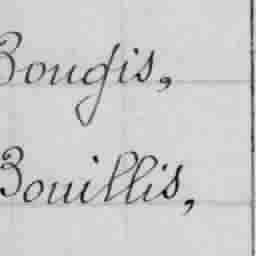 Bougis,
Bouillis,